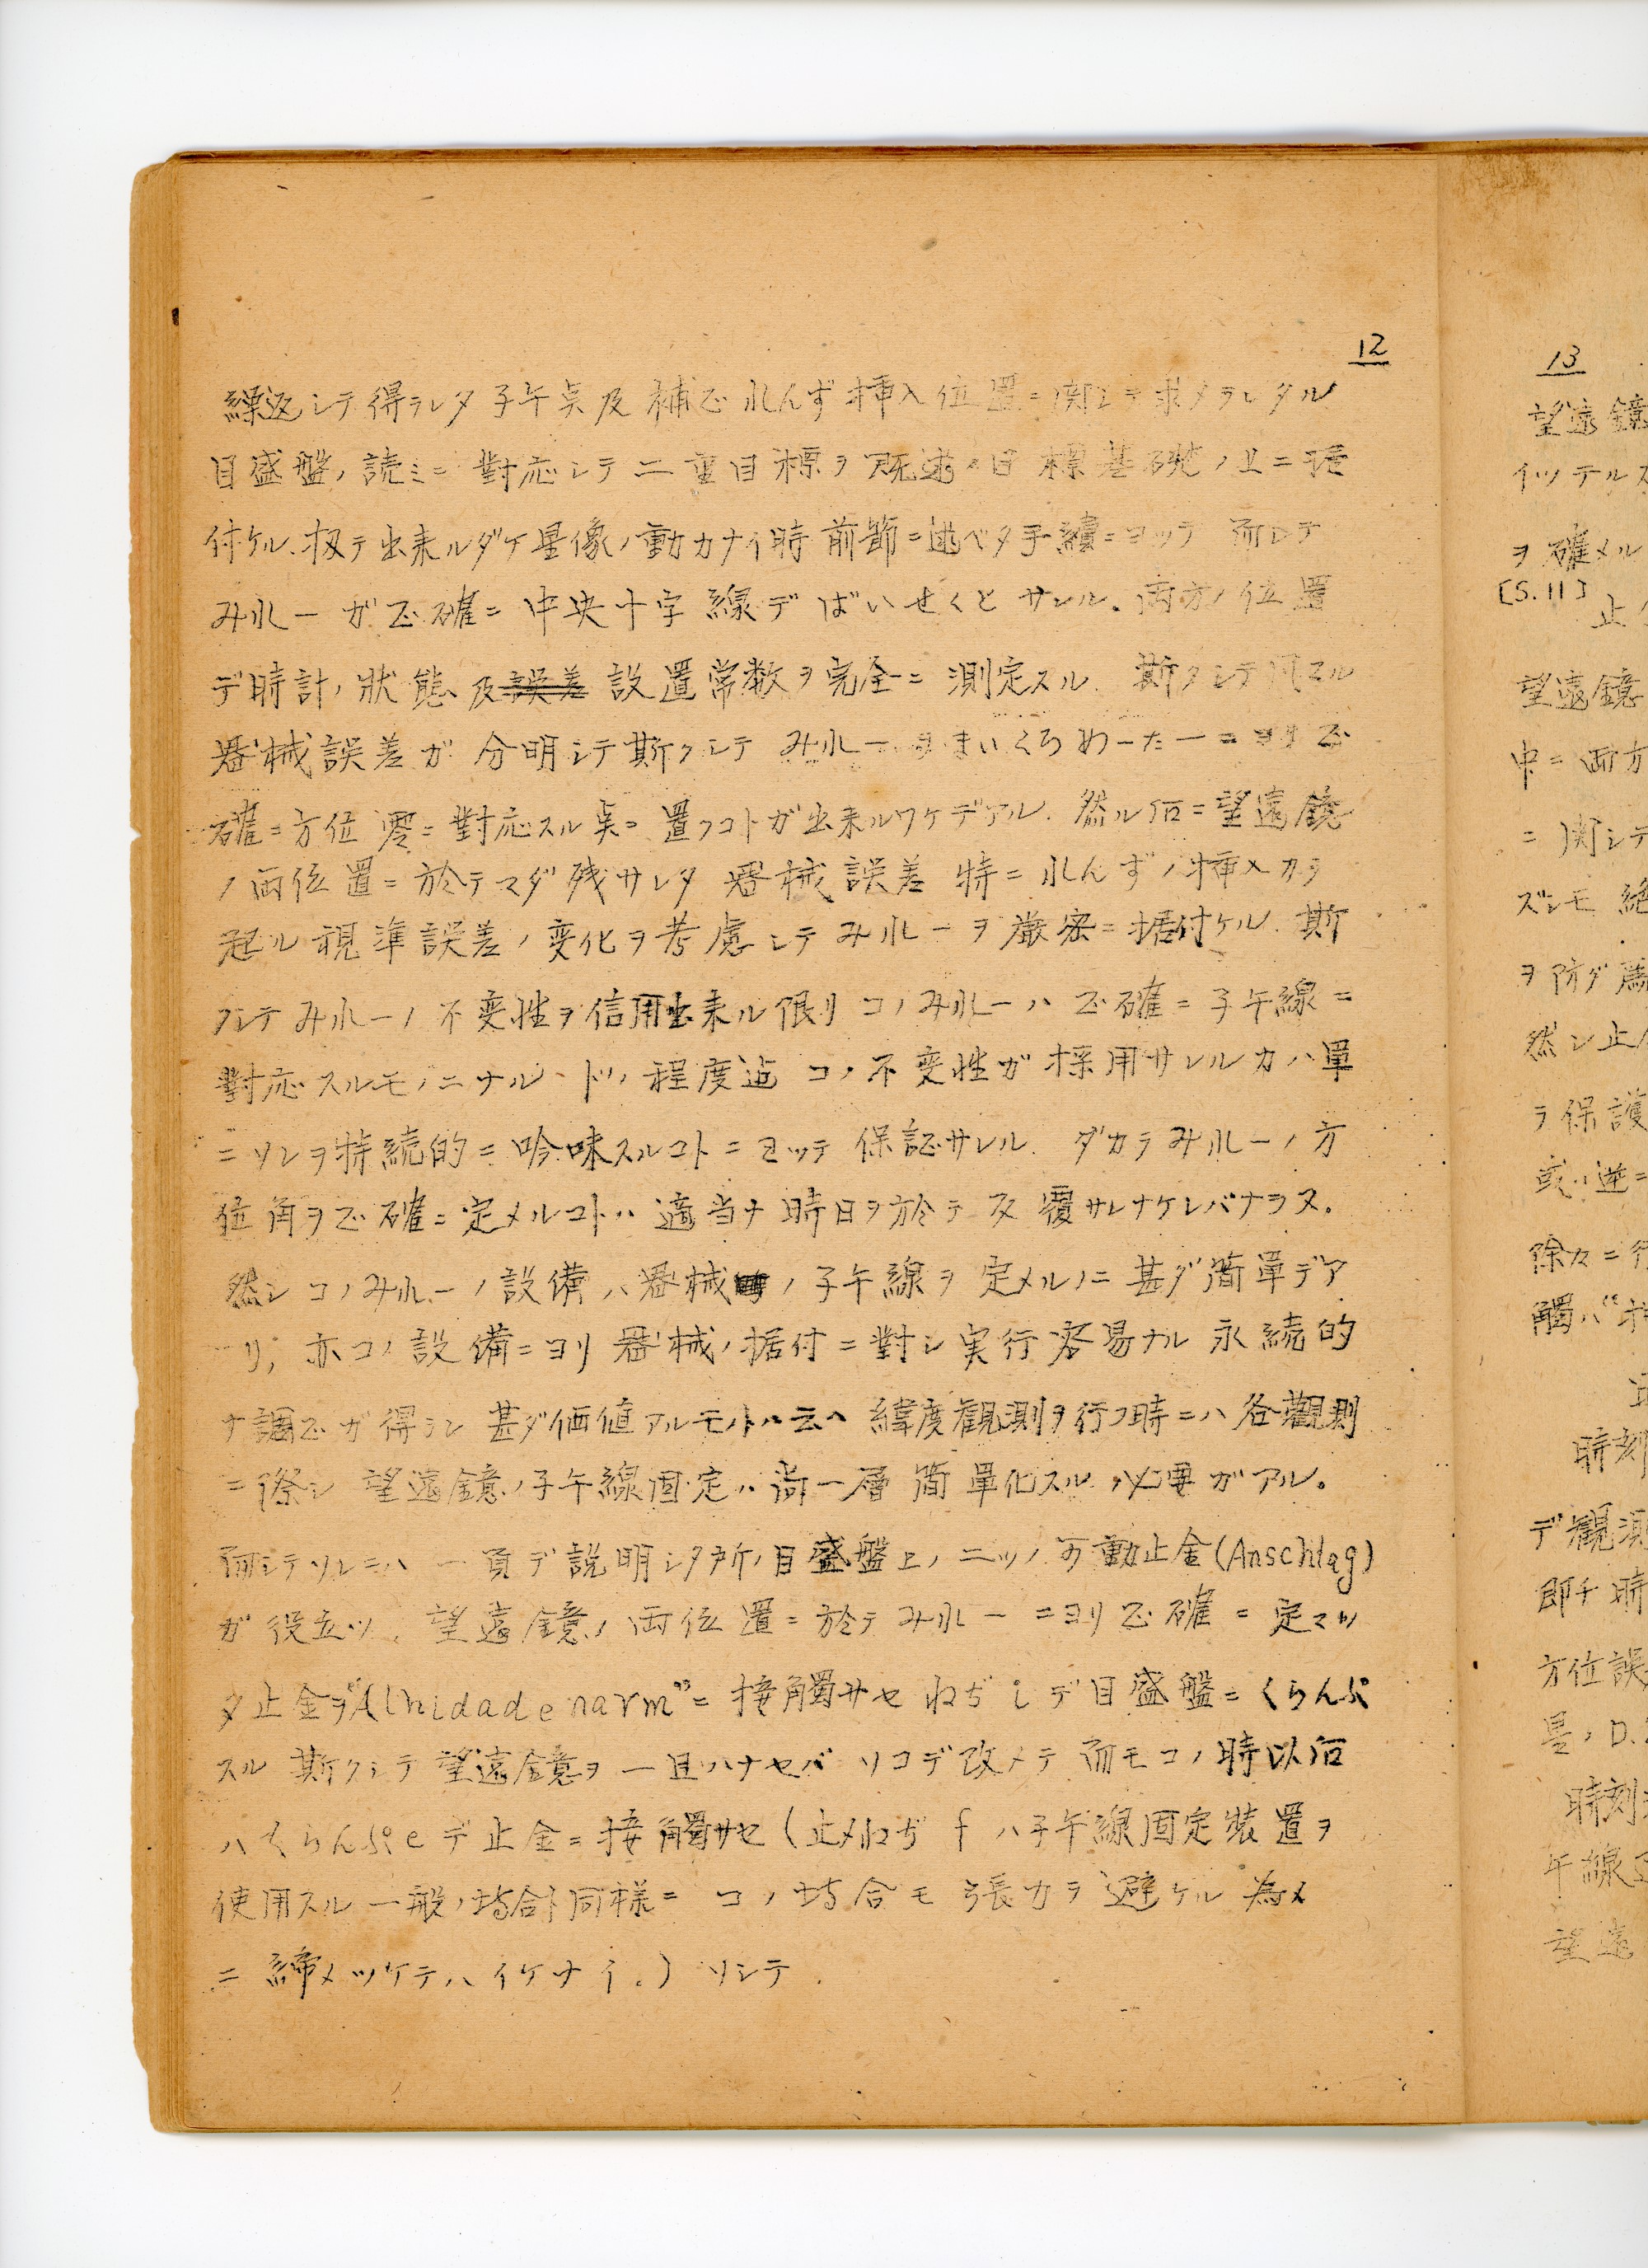 12
繰返シテ得ラレタ子午点及補正れんず挿入位置ニ関シテ求メラレタル
目盛盤ノ読ミニ對応シテ二重目標ヲ既述ノ目標基礎ノ上ニ据
付ケル、扨テ出来ルダケ星像ノ動カナイ時前節ニ述ベタ手續ニヨッテ而シテ
みれーガ正確ニ中央十字線デばいせくとサレル。両方ノ位置
デ時計ノ狀態及誤差設置常数ヲ完全ニ測定スル. 斯クシテ
器械誤差ガ分明シテ斯クシテみれーヲまいくろめーたーニヨリ正
確ニ方位零ニ對応スル点ニ置クコトガ出来ルワケデアル. 然ル后ニ望遠鏡
ノ両位置ニ於テマダ残サレタ器械誤差特ニれんずノ挿入カラ
起ル視準誤差ノ変化ヲ考慮シテみれーヲ厳密ニ据付ケル. 斯
クシテみれーノ不変性ヲ信用出来ル限リコノみれーハ正確ニ子午線ニ
對応スルモノニナル ドノ程度迄コノ不変性ガ採用サレルカハ單
ニソレヲ持続的ニ吟味スルコトニヨッテ保証サレル. ダカラみれーノ方
位角ヲ正確ニ定メルコトハ適当ナ時日ヲ於テ反覆サレナケレバナラヌ.
然シコノみれーノ設備ハ器械ノ子午線ヲ定メルノニ甚ダ簡單デア
リ, 亦コノ設備ニヨリ器械ノ据付ニ對シ実行容易ナル永続的
ナ調正ガ得ラレ甚ダ価値アルモノトハ云ヘ緯度観測ヲ行フ時ニハ各觀測
ニ際シ望遠鏡ノ子午線固定ハ尚一層簡單化スル必要ガアル。
而シテソレニハ一頁デ説明シタ所ノ目盛盤上ノ二ツノ可動止金(Anschlag)
ガ役立ツ. 望遠鏡ノ両位置ニ於テみれーニヨリ正確ニ定マツ
タ止金ヲ"Alhidadenarm"ニ接觸サセねぢiデ目盛盤ニくらんぷ
スル 斯クシテ望遠鏡ヲ一旦ハナセバソコデ改メテ而モコノ時以后
ハくらんぷeデ止金ニ接觸サセ(止メねぢfハ子午線固定裝置ヲ
使用スル一般ノ場合ト同様ニコノ場合モ張力ヲ避ケル為メ
ニ締メツケテハイケナイ.) ソシテ
13
望遠鏡
イツテルス
ヲ確メル
[S.11]
止
望遠鏡
中ニ両方
ニ関シテ
ズシモ絶
ヲ防グ為
然シ止
ラ保護
或ハ逆ニ
徐々ニ行
觸ハ
時刻
デ観測
即チ時
方位誤
是ノD.
時刻
午線
望遠